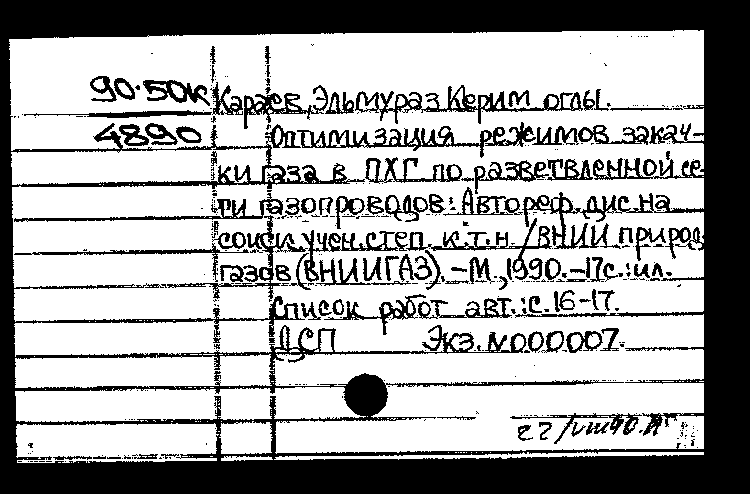 90-50К Караев, Эльмураз Керим оглы.
4890 Оптимизация режимов закач-
ки газа в ПХГ по разветвленной се-
ти газопроводов: Автореф. дис. на
соиск. учен. степ. к.т.н. /ВНИИ природ.
газов (ВНИИГАЗ). -М., 1990. -17с.:ил.
Список работ авт.: с. 16-17.
ДСП Экз. N000007.
22/VIII90.